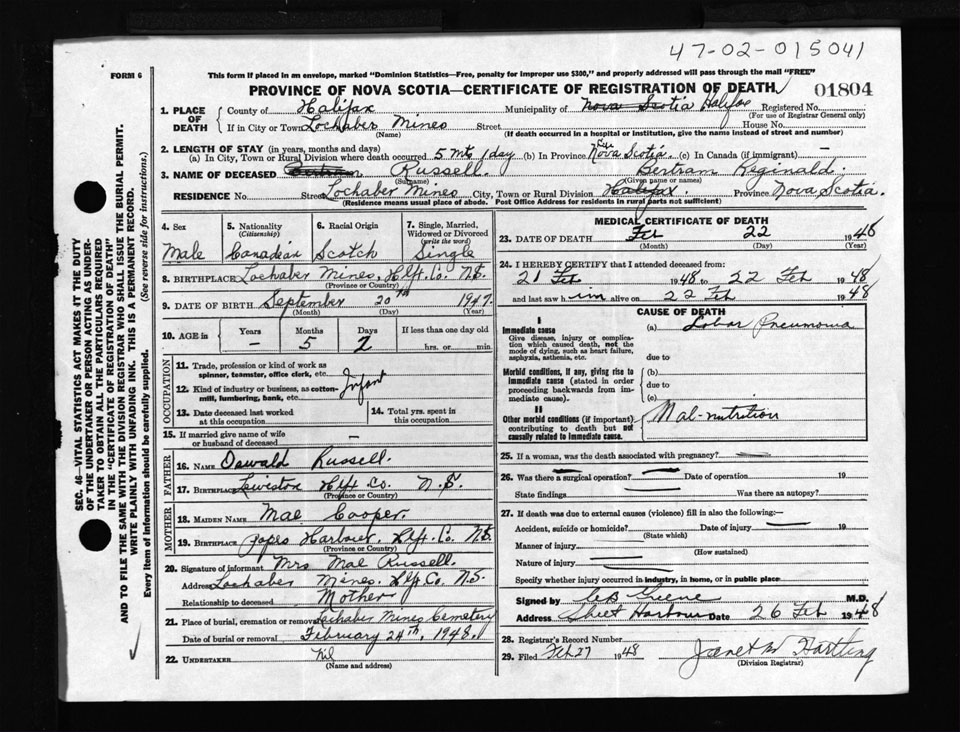 47-02-015041
FORM 6
This form if placed in an envelope, marked "Dominion Statistics—Free, penalty for improper use $300," and properly addressed will pass through the mail "FREE"
PROVINCE OF NOVA SCOTIA—CERTIFICATE OF REGISTRATION OF DEATH
01804
1. PLACE OF DEATH County of Halifax Municipality of Nova Scotia Halifax Registered No.
(For use of Registrar General only)
If in City or Town Lochaber Mines Street House No.
(Name) (If death occurred in a hospital or institution, give the name instead of street and number)
2. LENGTH OF STAY (in years, months and days)
(a) In City, Town or Rural Division where death occurred 5 mts 1 day (b) In Province Life Nova Scotia. (c) In Canada (if immigrant) —
3. NAME OF DECEASED Bertram Russell. Bertram Reginald.
(Surname) (Given name or names)
RESIDENCE No. Street Lochaber Mines City, Town or Rural Division Halifax. Province Nova Scotia.
(Residence means usual place of abode. Post Office Address for residents in rural parts not sufficient)
4. Sex Male
5. Nationality (Citizenship) Canadian
6. Racial Origin Scotch
7. Single, Married, Widowed or Divorced (write the word) Single
8. BIRTHPLACE Lochaber Mines, Hlfx. Co. N.S.
(Province or Country)
9. DATE OF BIRTH September 20th 1947.
(Month) (Day) (Year)
10. AGE in Years — Months 5 Days 2 If less than one day old hrs. or min.
OCCUPATION
11. Trade, profession or kind of work as spinner, teamster, office clerk, etc.
12. Kind of industry or business, as cotton-mill, lumbering, bank, etc. Infant
13. Date deceased last worked at this occupation
14. Total yrs. spent in this occupation
15. If married give name of wife or husband of deceased —
FATHER
16. NAME Oswald Russell.
17. BIRTHPLACE Lewiston Hlfx Co. N.S.
(Province or Country)
MOTHER
18. MAIDEN NAME Mae Cooper.
19. BIRTHPLACE Popes Harbour, Hlfx. Co. N.S.
(Province or Country)
20. Signature of informant Mrs Mae Russell.
Address Lochaber Mines. Hlfx Co. N.S.
Relationship to deceased Mother
21. Place of burial, cremation or removal Lochaber Mines Cemetery
Date of burial or removal February 24th, 1948.
22. UNDERTAKER Nil
(Name and address)
MEDICAL CERTIFICATE OF DEATH
23. DATE OF DEATH Feb 22 1948
(Month) (Day) (Year)
24. I HEREBY CERTIFY that I attended deceased from:
21 Feb 1948 to 22 Feb 1948
and last saw him alive on 22 Feb 1948
CAUSE OF DEATH
I
Immediate cause (a) Lobar Pneumonia
Give disease, injury or complication which caused death, not the mode of dying, such as heart failure, asphyxia, asthenia, etc.
due to
Morbid conditions, if any, giving rise to immediate cause (stated in order proceeding backwards from immediate cause).
(b)
due to
(c)
II
Other morbid conditions (if important) contributing to death but not causally related to immediate cause.
Mal-nutrition
25. If a woman, was the death associated with pregnancy?
26. Was there a surgical operation? Date of operation 19
State findings Was there an autopsy?
27. If death was due to external causes (violence) fill in also the following:—
Accident, suicide or homicide? Date of injury 19
(State which)
Manner of injury
(How sustained)
Nature of injury
Specify whether injury occurred in industry, in home, or in public place
Signed by Greene M.D.
Address Sheet Harbour Date 26 Feb 1948
28. Registrar's Record Number
29. Filed Feb 27 1948 Janet W Hartling
(Division Registrar)
SEC. 46—VITAL STATISTICS ACT MAKES IT THE DUTY
OF THE UNDERTAKER OR PERSON ACTING AS UNDER-
TAKER TO OBTAIN ALL THE PARTICULARS REQUIRED
IN THE "CERTIFICATE OF REGISTRATION OF DEATH"
AND TO FILE THE SAME WITH THE DIVISION REGISTRAR WHO SHALL ISSUE THE BURIAL PERMIT.
WRITE PLAINLY WITH UNFADING INK. THIS IS A PERMANENT RECORD.
Every item of Information should be carefully supplied. (See reverse side for instructions.)